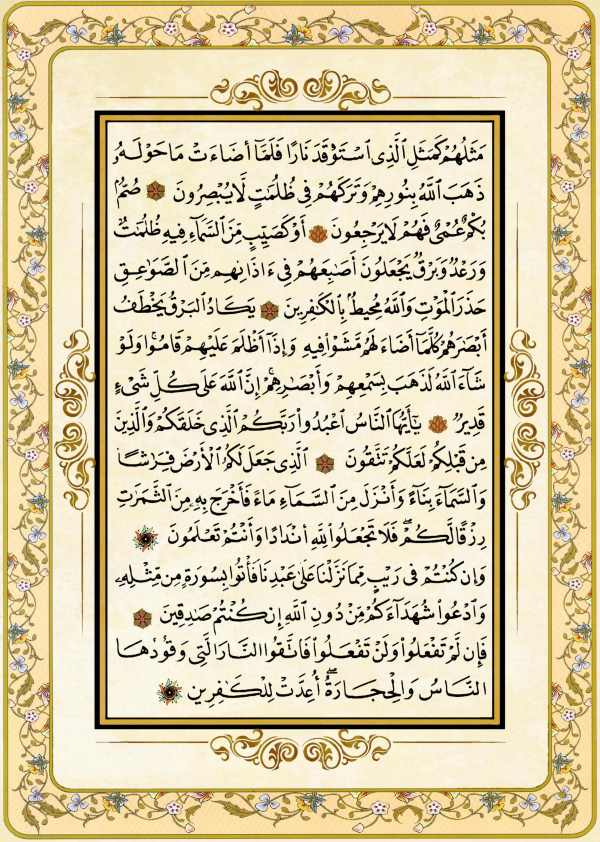 مَثَلُهُمْ كَمَثَلِ ٱلَّذِى ٱسْتَوْقَدَ نَارًا فَلَمَّآ أَضَآءَتْ مَا حَوْلَهُۥ
ذَهَبَ ٱللَّهُ بِنُورِهِمْ وَتَرَكَهُمْ فِى ظُلُمَٰتٍ لَّا يُبْصِرُونَ صُمٌّۢ
بُكْمٌ عُمْىٌ فَهُمْ لَا يَرْجِعُونَ أَوْ كَصَيِّبٍ مِّنَ ٱلسَّمَآءِ فِيهِ ظُلُمَٰتٌ
وَرَعْدٌ وَبَرْقٌ يَجْعَلُونَ أَصَٰبِعَهُمْ فِىٓ ءَاذَانِهِم مِّنَ ٱلصَّوَٰعِقِ
حَذَرَ ٱلْمَوْتِ وَٱللَّهُ مُحِيطٌۢ بِٱلْكَٰفِرِينَ يَكَادُ ٱلْبَرْقُ يَخْطَفُ
أَبْصَٰرَهُمْ كُلَّمَآ أَضَآءَ لَهُم مَّشَوْا۟ فِيهِ وَإِذَآ أَظْلَمَ عَلَيْهِمْ قَامُوا۟ وَلَوْ
شَآءَ ٱللَّهُ لَذَهَبَ بِسَمْعِهِمْ وَأَبْصَٰرِهِمْ إِنَّ ٱللَّهَ عَلَىٰ كُلِّ شَىْءٍ
قَدِيرٌ يَٰٓأَيُّهَا ٱلنَّاسُ ٱعْبُدُوا۟ رَبَّكُمُ ٱلَّذِى خَلَقَكُمْ وَٱلَّذِينَ
مِن قَبْلِكُمْ لَعَلَّكُمْ تَتَّقُونَ ٱلَّذِى جَعَلَ لَكُمُ ٱلْأَرْضَ فِرَٰشًا
وَٱلسَّمَآءَ بِنَآءً وَأَنزَلَ مِنَ ٱلسَّمَآءِ مَآءً فَأَخْرَجَ بِهِۦ مِنَ ٱلثَّمَرَٰتِ
رِزْقًا لَّكُمْ ۖ فَلَا تَجْعَلُوا۟ لِلَّهِ أَندَادًا وَأَنتُمْ تَعْلَمُونَ
وَإِن كُنتُمْ فِى رَيْبٍ مِّمَّا نَزَّلْنَا عَلَىٰ عَبْدِنَا فَأْتُوا۟ بِسُورَةٍ مِّن مِّثْلِهِۦ
وَٱدْعُوا۟ شُهَدَآءَكُم مِّن دُونِ ٱللَّهِ إِن كُنتُمْ صَٰدِقِينَ
فَإِن لَّمْ تَفْعَلُوا۟ وَلَن تَفْعَلُوا۟ فَٱتَّقُوا۟ ٱلنَّارَ ٱلَّتِى وَقُودُهَا
ٱلنَّاسُ وَٱلْحِجَارَةُ ۖ أُعِدَّتْ لِلْكَٰفِرِينَ